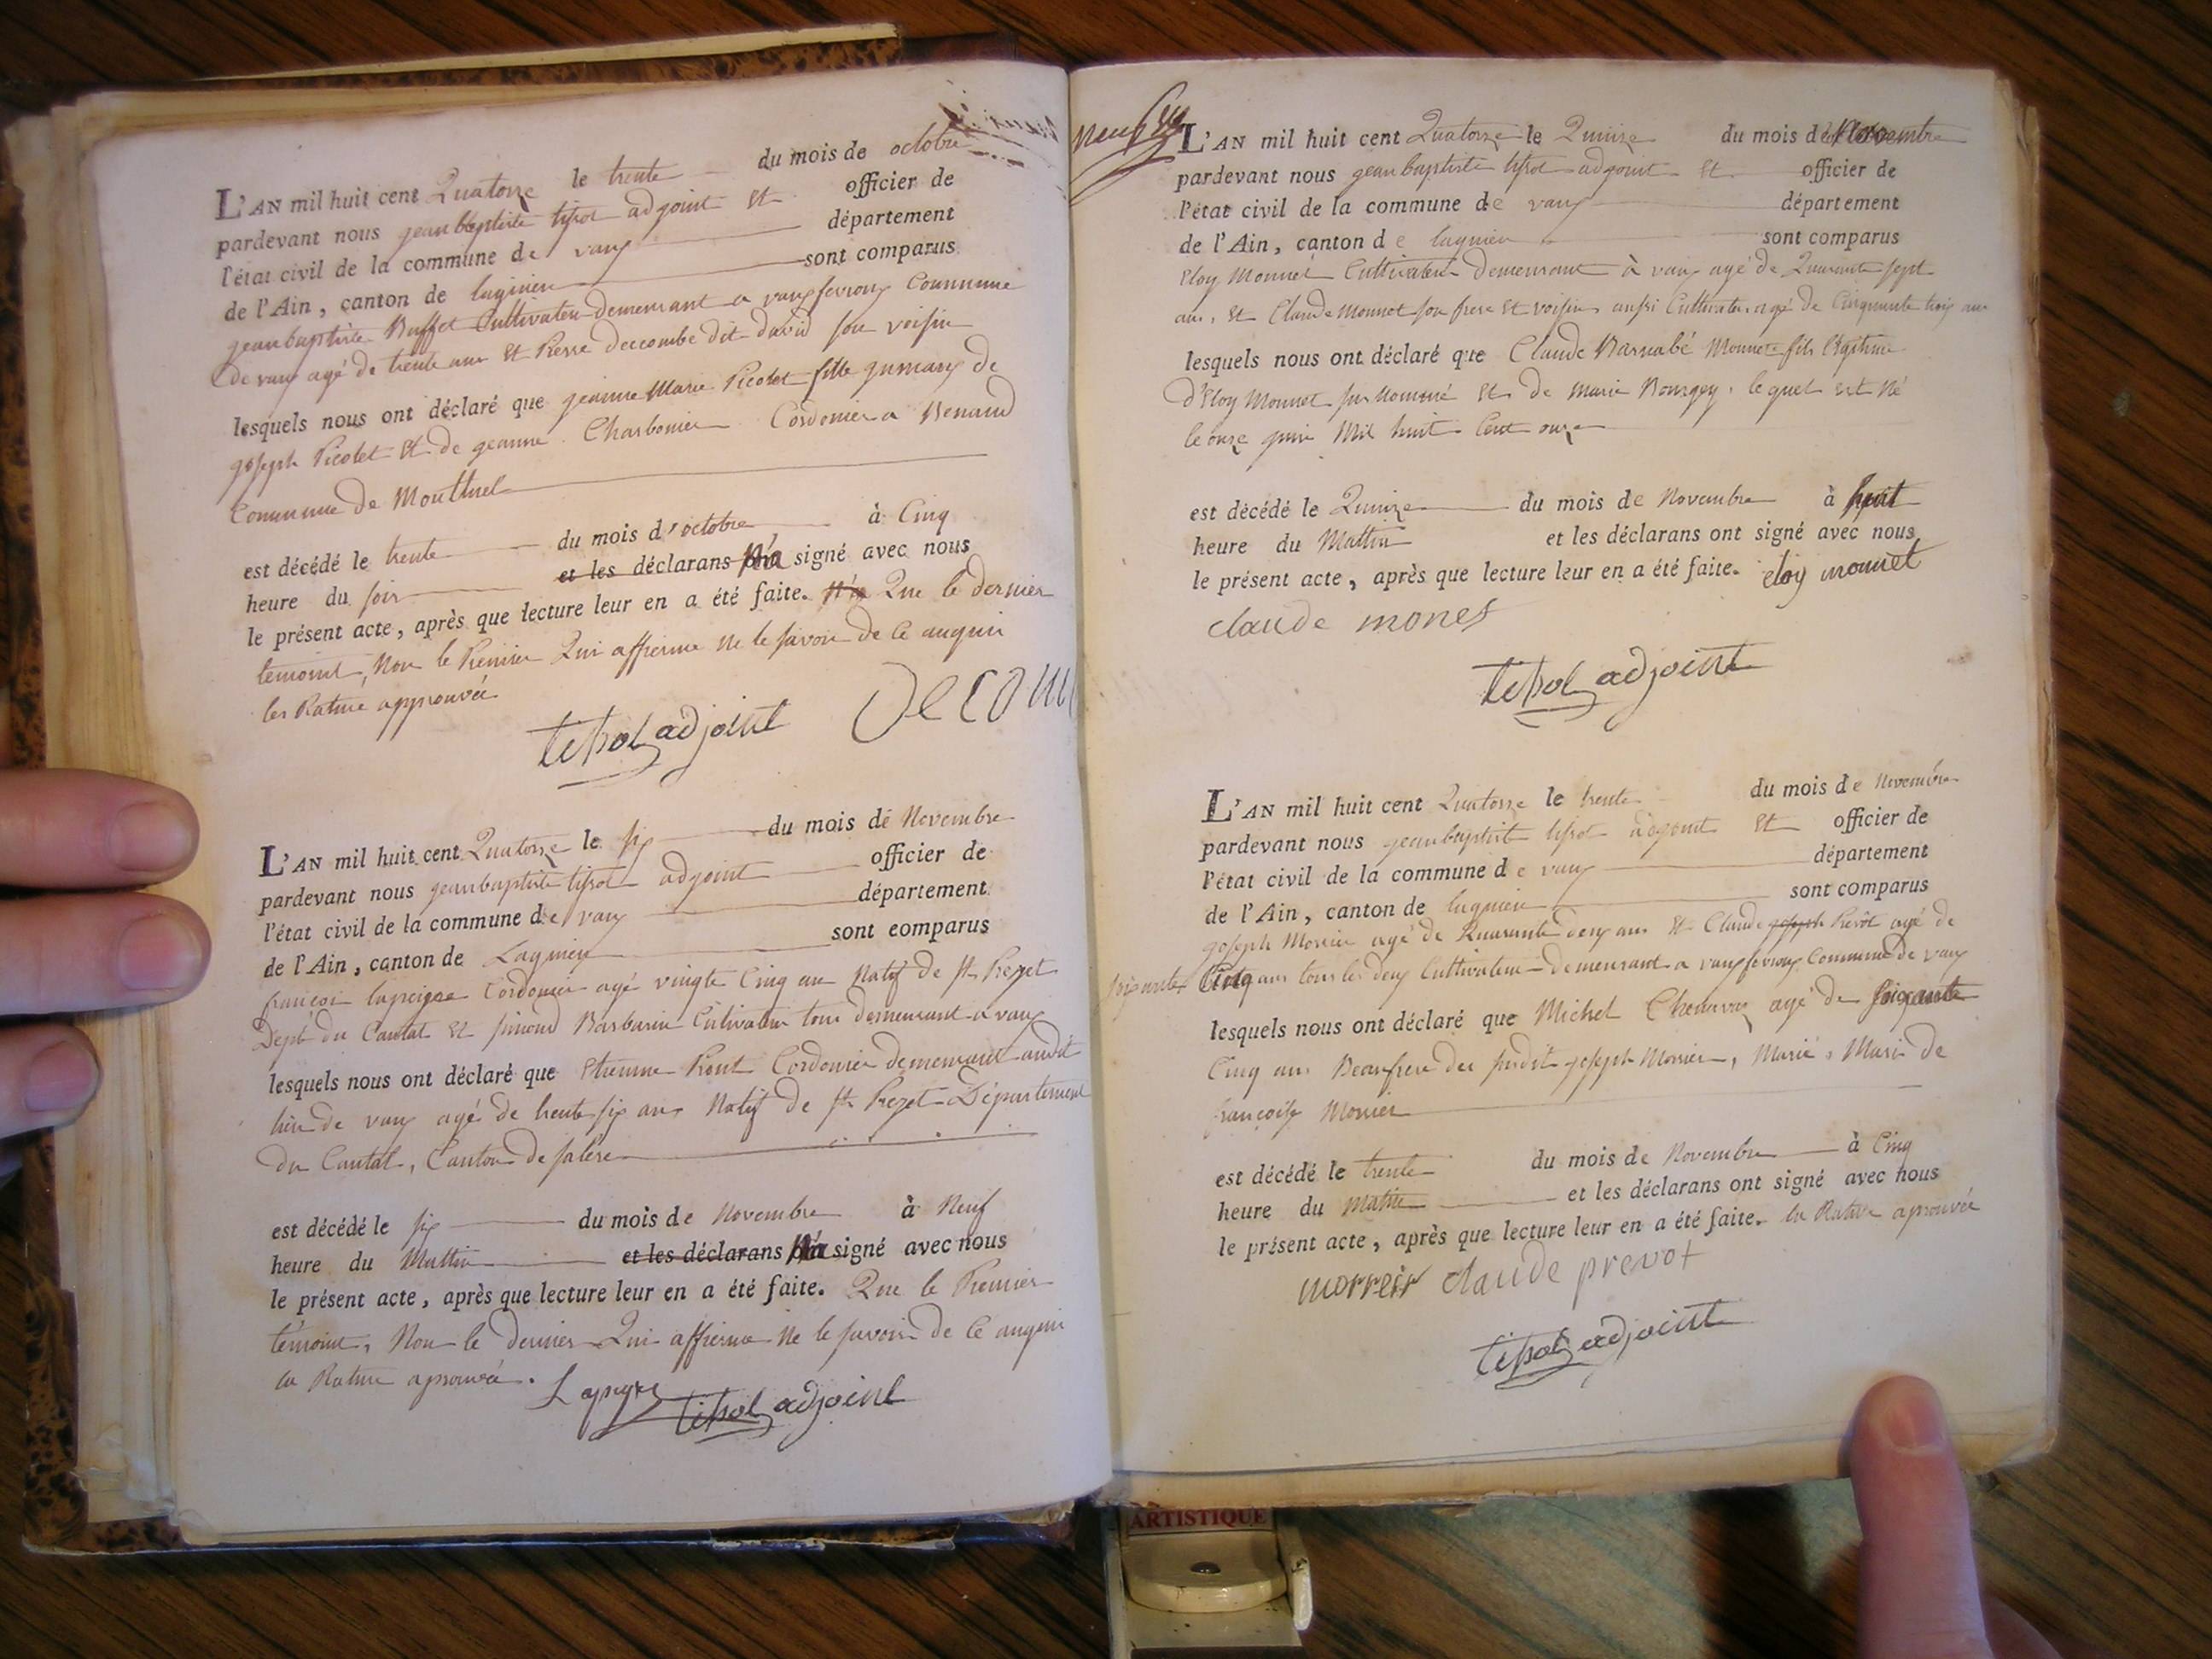 L'AN mil huit cent Quatorze le trente du mois de octobre
pardevant nous jean baptiste tissot adjoint et officier de
l'état civil de la commune de vaux département
de l'Ain, canton de lagnieu sont comparus
jean baptiste Buffet Cultivateur demeurant a vauxfevroux Commune
de vaux agé de trente ans et Pierre decombe dit david son voisin
lesquels nous ont déclaré que jeanne Marie Picolet fille de
joseph Picolet et de jeanne Charbonier Cordonier a
Commune de Montluel
est décédé le trente du mois d'octobre à Cinq
heure du soir et les déclarans n'a signé avec nous
le présent acte, après que lecture leur en a été faite. n'a Que le dernier
temoint, Non le Premier Qui affierme ne le savoir de ce anquiri
les Rature approuvée
tissot adjoint Decom
L'AN mil huit cent Quatorze le six du mois de Novembre
pardevant nous jean baptiste tissot adjoint officier de
l'état civil de la commune de vaux département
de l'Ain, canton de Lagnieu sont comparus
françois lapeigre Cordonier agé vingte Cinq ans Natif de st Prezet
Dept du Cantal et simond Barbarin Cultivateur tous demeurant a vaux
lesquels nous ont déclaré que Etienne Pront Cordonier demeurant audit
lieu de vaux agé de trente six ans Natif de st Prezet Département
du Cantal, Canton de salers
est décédé le six du mois de Novembre à Neuf
heure du Mattin et les déclarans n'a signé avec nous
le présent acte, après que lecture leur en a été faite. Que le Premier
témoint, Non le dernier Qui affierme Ne le savoir de Ce anquiri
la Rature aprouvée. Lapeyre tissot adjoint
neuf
L'AN mil huit cent Quatorze le Quinze du mois de Novembre
pardevant nous jean baptiste tissot adjoint et officier de
l'état civil de la commune de vaux département
de l'Ain, canton de lagnieu sont comparus
Eloy Monnet Cultivateur demeurant à vaux agé de Quarante sept
ans, et Claude Monnet son frere et voisin aussi Cultivateur agé de Cinquante trois ans
lesquels nous ont déclaré que Claude Barnabé Monnet fils légitime
d'Eloy Monnet sus nommé et de Marie Bourgey, lequel est Né
le onze juin Mil huit Cent onze
est décédé le Quinze du mois de Novembre à huit
heure du Mattin et les déclarans ont signé avec nous
le présent acte, après que lecture leur en a été faite. eloy monnet
claude mones
tissot adjoint
L'AN mil huit cent Quatorze le trente du mois de Novembre
pardevant nous jean baptist tissot adjoint et officier de
l'état civil de la commune de vaux département
de l'Ain, canton de lagnieu sont comparus
joseph Morrier agé de Quarante deux ans et Claude joseph Prevôt agé de
soixante Cinq ans tous les deux Cultivateur demeurant a vauxfevroux Commune de vaux
lesquels nous ont déclaré que Michel Chenavaz agé de soixante
Cinq ans Beaufrere du susdit joseph Morrier, Marié, Mari de
françoise Morrier
est décédé le trente du mois de Novembre à Cinq
heure du Matin et les déclarans ont signé avec nous
le présent acte, après que lecture leur en a été faite. la Rature aprouvée
morreir claude prevot
tissot adjoint
ARTISTIQUE